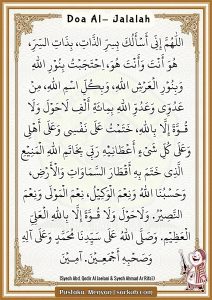 Doa Al- Jalalah
اَللّٰهُمَّ إِنِّى أَسْأَلُكَ بِسِرِّ الذَّاتِ، بِذَاتِ السِّرِّ،
هُوَ أَنْتَ وَأَنْتَ هُوَ، اِحْتَجَبْتُ بِنُوْرِ اللهِ
وَبِنُوْرِ الْعَرْشِ اللهِ، وَبِكُلِّ اسْمِ اللهِ، مِنْ
عَدُوِّى وَعَدُوِّ اللهِ بِمِائَةِ أَلْفِ لَاحَوْلَ وَلَا
قُوَّةَ إِلَّا بِاللهِ، خَتَمْتُ عَلَى نَفْسِى وَعَلَى أَهْلِى
وَعَلَى كُلِّ شَىْءٍ أَعْطَانِيْهِ رَبِّى بِخَاتَمِ اللهِ الْمَنِيْعِ
الَّذِى خَتَمَ بِهِ أَقْطَارَ السَّمَاوَاتِ وَالْأَرْضِ،
وَحَسْبُنَا اللهُ وَنِعْمَ الْوَكِيْلُ، نِعْمَ الْمَوْلَى وَنِعْمَ
النَّصِيْرُ. وَلَاحَوْلَ وَلَا قُوَّةَ إِلَّا بِاللهِ الْعَلِيِّ
الْعَظِيْمِ، وَصَلَّى اللهُ عَلَى سَيِّدِنَا مُحَمَّدٍ وَعَلَى آلِهِ
وَصَحْبِهِ أَجْمَعِيْنَ. آمِيْنَ
(Syech Abd. Qodir Al Jaelani & Syech Ahmad Ar Rifa'i)
Pustaka. Menyan | surkub.com